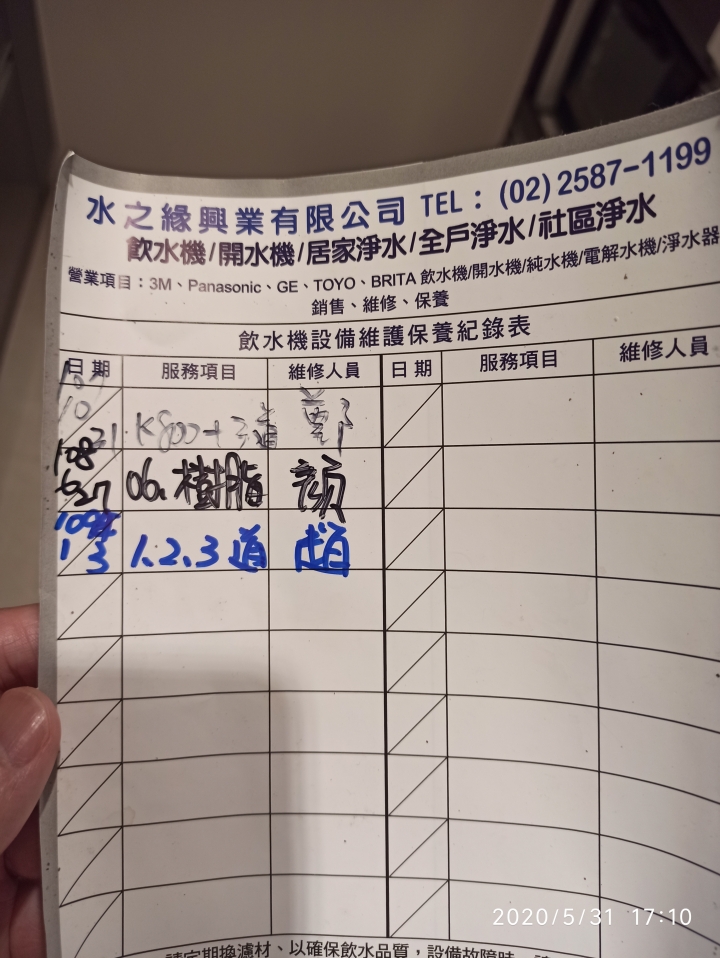 水之緣興業有限公司 TEL：(02)2587-1199
飲水機/開水機/居家淨水/全戶淨水/社區淨水
營業項目：3M、Panasonic、GE、TOYO、BRITA 飲水機/開水機/純水機/電解水機/淨水器
銷售、維修、保養
飲水機設備維護保養紀錄表
日期 服務項目 維修人員 日期 服務項目 維修人員
10 21 K800+3道 鄭
108 6 27 06. 樹脂 顏
109 1 3 1.2.3道 趙
請定期換濾材、以確保飲水品質，設備故障時
2020/5/31 17:10